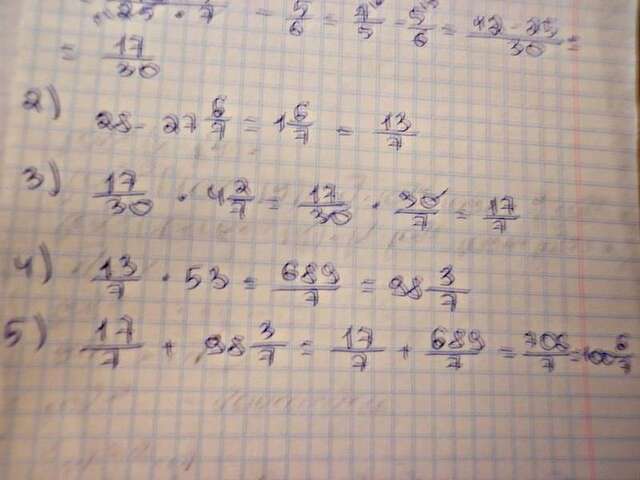 25 · 7 = 5/6 = 7/5 - 5/6 = 42 - 25/30 =
= 17/30
2) 28 - 27 6/7 = 1 6/7 = 13/7
3) 17/30 · 4 2/7 = 17/30 · 30/7 = 17/7
4) 13/7 · 53 = 689/7 = 98 3/7
5) 17/7 + 98 3/7 = 17/7 + 689/7 = 706/7 = 100 6/7